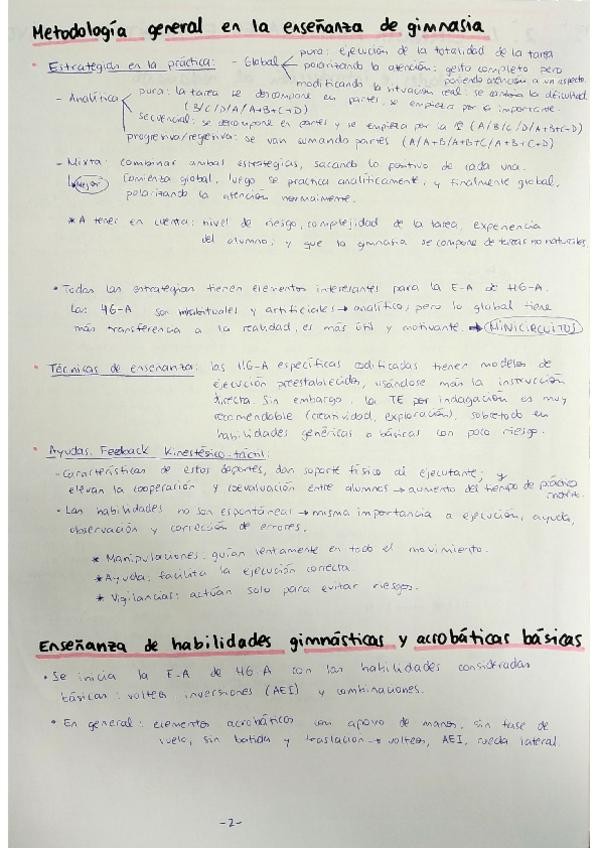 Metodología general en la enseñanza de gimnasia
• Estrategias en la práctica: - Global
pura: ejecución de la totalidad de la tarea
polarizando la atención: gesto completo pero
poniendo atención a un aspecto.
modificando la situación real: se cambia la dificultad
- Analítica
pura: la tarea se descompone en partes, se empieza por + importante
(B/C/D/A/A+B+C+D)
secuencial: se descompone en partes y se empieza por la 1ª (A/B/C/D/A+B+C+D)
progresiva/regresiva: se van sumando partes (A/A+B/A+B+C/A+B+C+D)
- Mixta: combinar ambas estrategias, sacando lo positivo de cada una.
Mejor comienza global, luego se practica analíticamente, y finalmente global,
polarizando la atención normalmente.
* A tener en cuenta: nivel de riesgo, complejidad de la tarea, experiencia
del alumno; y que la gimnasia se compone de tareas no naturales.
• Todas las estrategias tienen elementos interesantes para la E-A de HG-A.
Las HG-A son inhabituales y artificiales → analítico; pero lo global tiene
más transferencia a la realidad, es más útil y motivante. → MINICIRCUITOS
• Técnicas de enseñanza: las HG-A específicas codificadas tienen modelos de
ejecución preestablecidos, usándose más la instrucción
directa. Sin embargo, la TE por indagación es muy
recomendable (creatividad, exploración), sobretodo en
habilidades genéricas o básicas con poco riesgo.
• Ayudas. Feedback Kinestésico-táctil:
- Características de estos deportes, dan soporte físico al ejecutante; y
elevan la cooperación y coevaluación entre alumnos → aumento del tiempo de práctica
motriz.
- Las habilidades no son espontáneas → misma importancia a ejecución, ayuda,
observación y corrección de errores.
* Manipulaciones: guían lentamente en todo el movimiento.
* Ayuda: facilita la ejecución correcta.
* Vigilancias: actúan solo para evitar riesgos.
Enseñanza de habilidades gimnásticas y acrobáticas básicas
• Se inicia la E-A de HG-A con las habilidades consideradas
básicas: volteos, inversiones (AEI) y combinaciones.
• En general: elementos acrobáticos con apoyo de manos, sin fase de
vuelo, sin batida y traslación → volteos, AEI, rueda lateral.
-2-